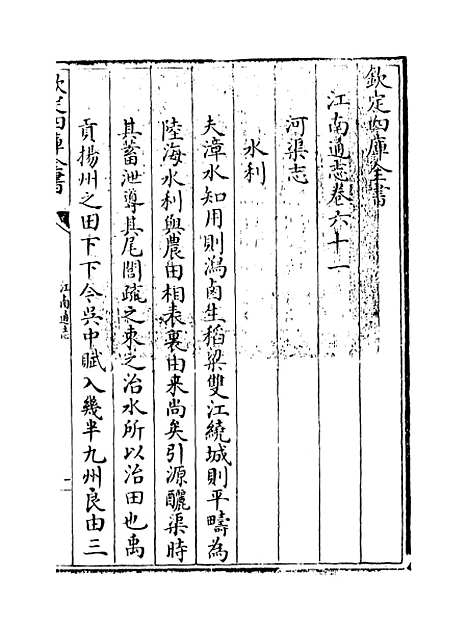 欽定四庫全書
江南通志卷六十一
河渠志
水利
夫漳水知用則潟鹵生稻粱雙江繞城則平疇為
陸海水利與農田相表裏由来尚矣引源釃渠時
其蓄泄導其尾閭疏之束之治水所以治田也禹
貢揚州之田下下今吳中賦入幾半九州良由三
欽定四庫全書
江南通志